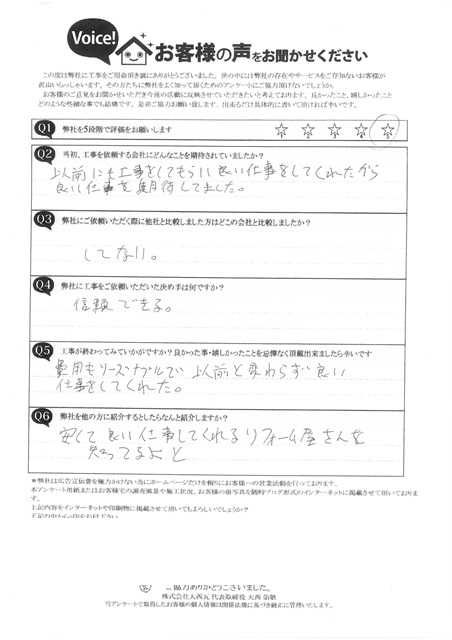 Voice!
お客様の声をお聞かせください
この度は弊社に工事をご用命頂き誠にありがとうございました。決の中には弊社の存在やサービスをご存知ないお客様が
沢山いらっしゃいます。その方たちに弊社をよく知って頂くためのアンケートにご協力頂けないでしょうか。
お客様のご意見をお聞かせいただき今後の活動に反映させていただきたいと考えております。良かったこと、嬉しかったこと
どのような些細な事でも結構です。是非ご協力お願い致します。出来るだけ具体的に書いて頂ければ幸いです。
Q1 弊社を5段階で評価をお願いします
☆1 ☆2 ☆3 ☆4 ☆5
Q2 当初、工事を依頼する会社にどんなことを期待されていましたか?
以前にも工事をしてもらい良い仕事をしてくれたから
良い仕事を期待してました。
Q3 弊社にご依頼いただく際に他社と比較しました方はどこの会社と比較しましたか?
してない。
Q4 弊社に工事をご依頼いただいた決め手は何ですか?
信頼できる。
Q5 工事が終わってみていかがですか?良かった事・嬉しかったことを忌憚なく頂戴出来ましたら幸いです
費用もリーズナブルで以前と変わらず良い
仕事をしてくれた。
Q6 弊社を他の方に紹介するとしたらなんと紹介しますか?
安くて良い仕事してくれるリフォーム屋さんを
知ってるよと
*弊社は広告宣伝費を極力かけない為にホームページだけを頼りにお客様への営業活動を行っております。
本アンケート用紙またはお客様宅の調査風景や施工状況、お客様の顔写真を随時ブログ形式のインターネットに掲載させて頂いております。
上記内容をインターネットや印刷物に掲載させて頂いてもよろしいでしょうか?
ご協力ありがとうございました。
株式会社大西瓦 代表取締役 大西 崇敬
当アンケートで取得したお客様の個人情報は関係法規に基づき厳正に管理いたします。